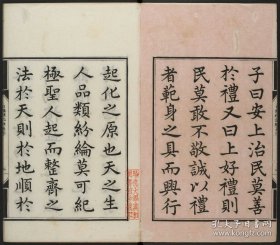 子曰安上治民莫善
於禮又曰上好禮則
民莫敢不敬誠以禮
者範身之具而興行
起化之原也天之生
人品類紛綸莫可紀
極聖人起而整齊之
法於天則於地順於